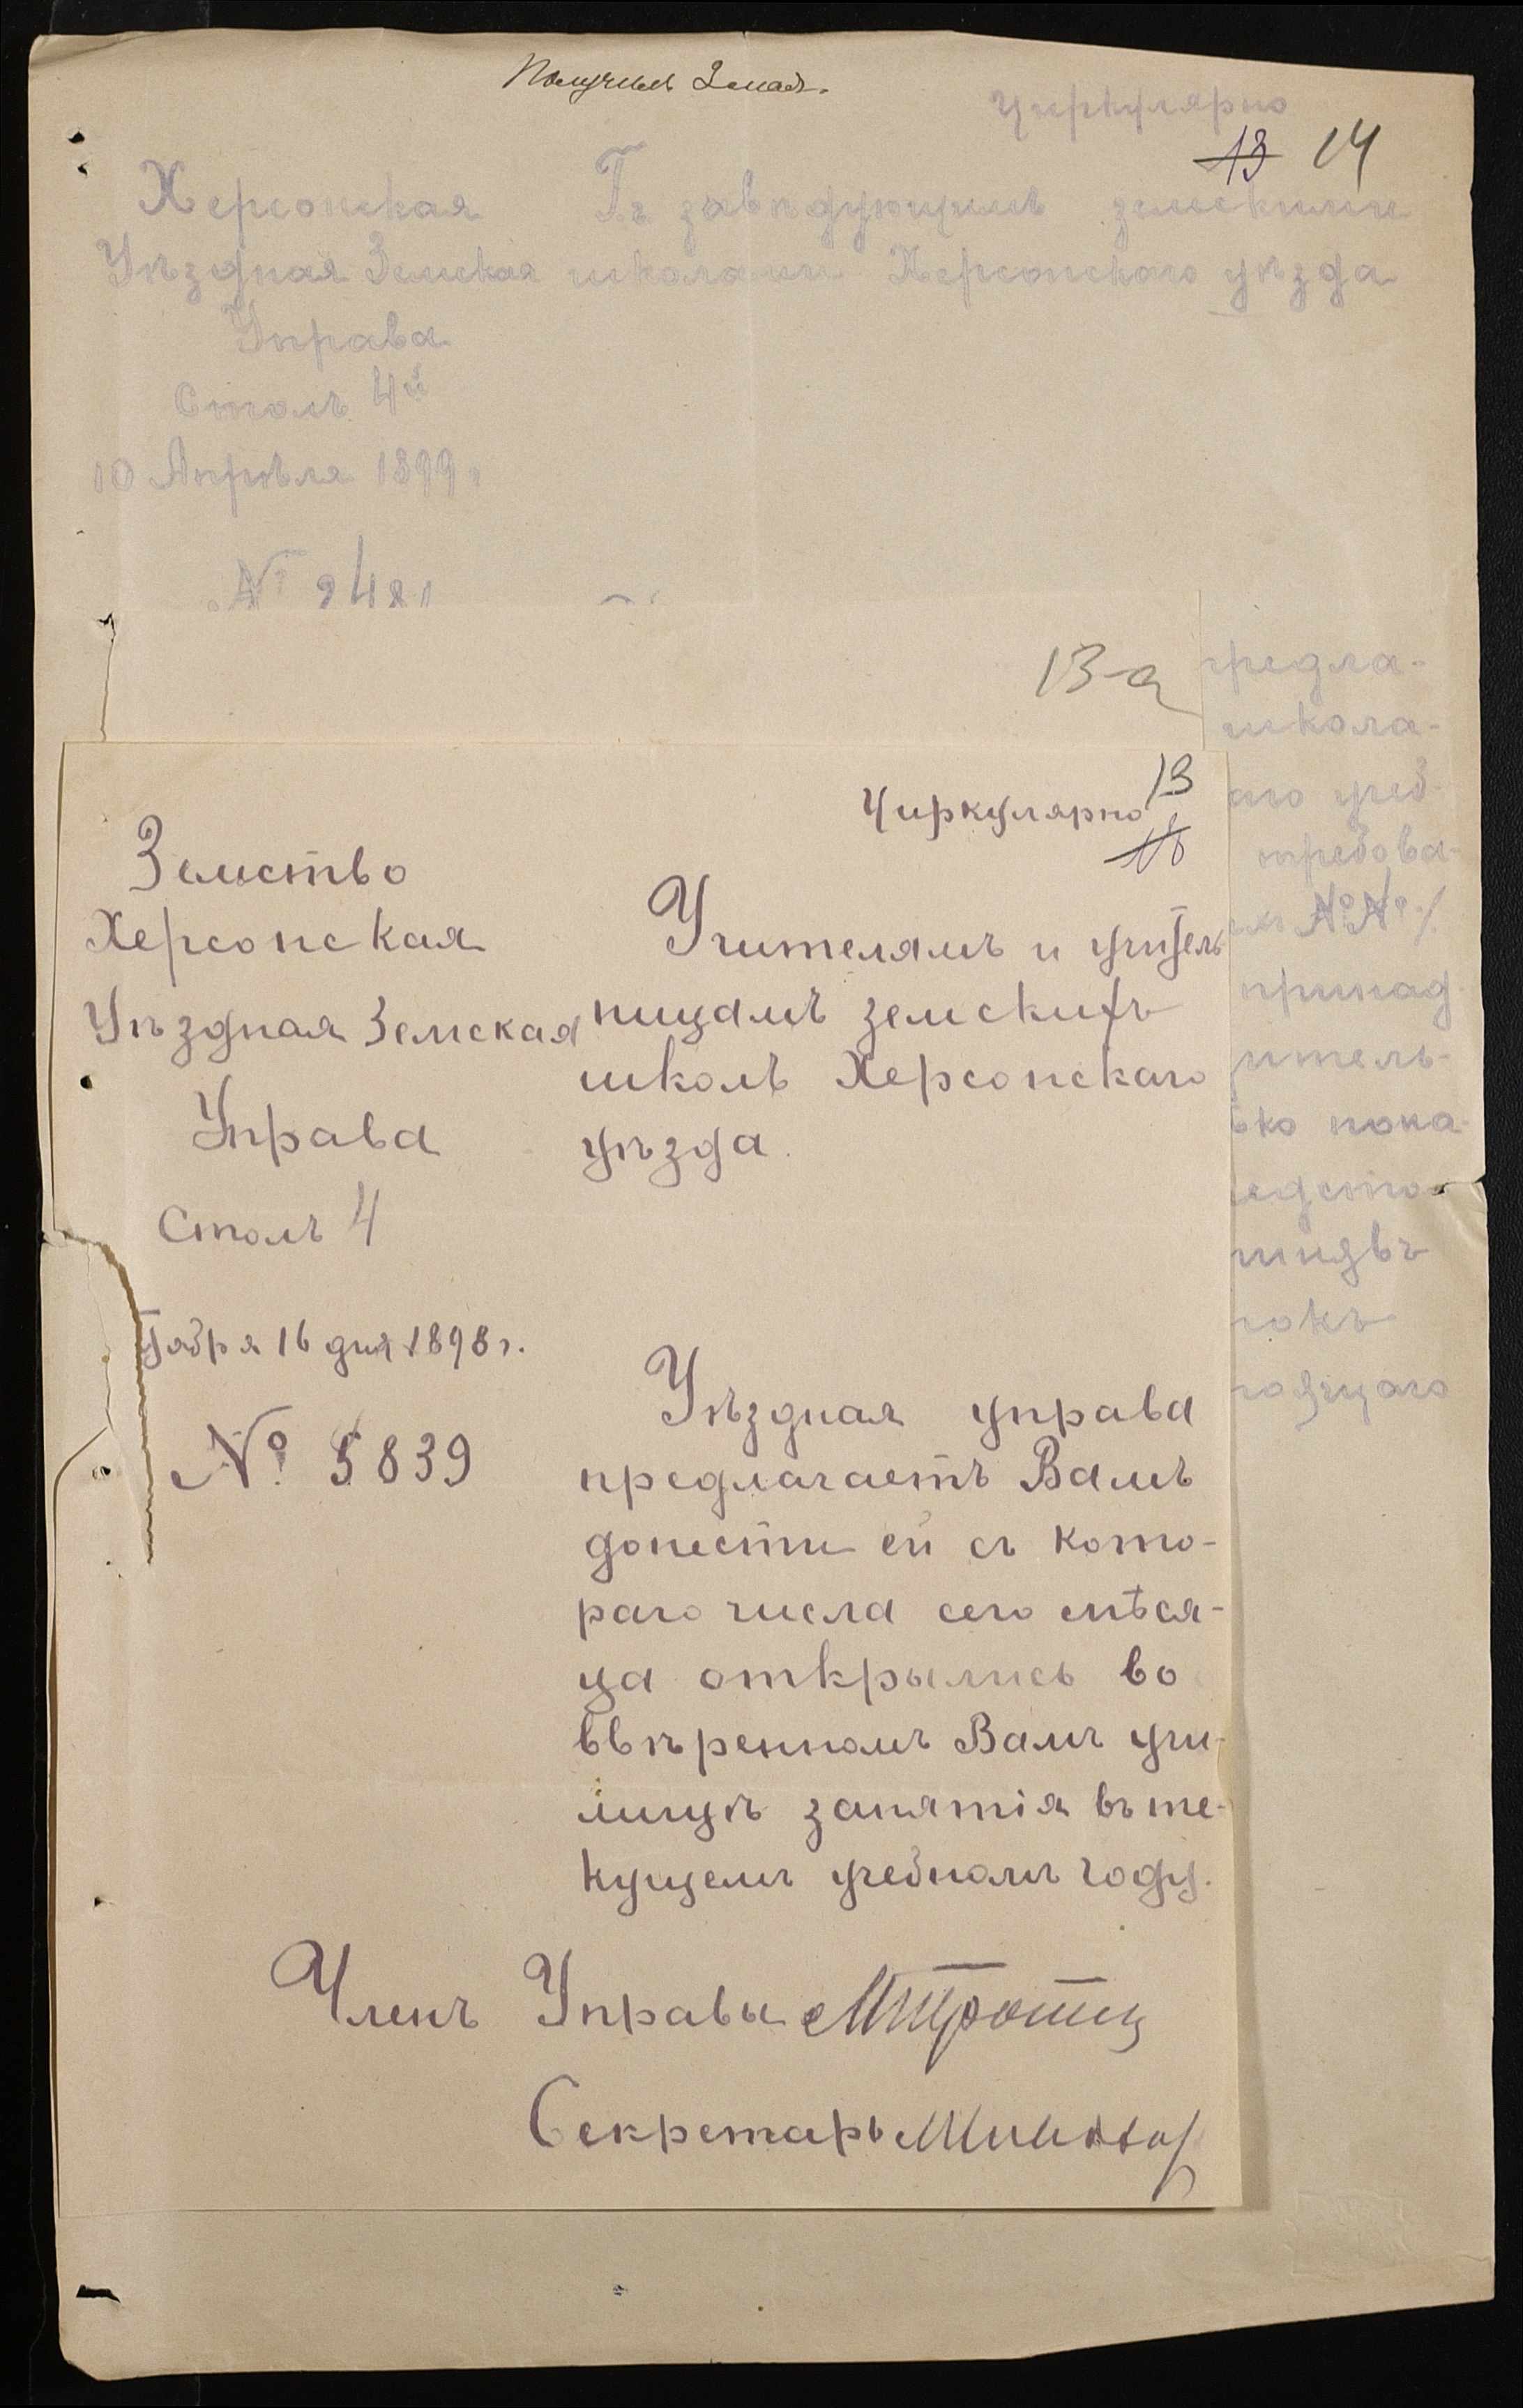 Получилъ 2 мая.
Циркулярно
13 14
Херсонская
Уѣздная Земская
Управа
Столъ 4й
10 Апрѣля 1899 г
Гг завѣдующимъ земскими
школами Херсонскаго уѣзда
№
13-а
предла-
школа-
аго учеб-
требова-
№№
принад-
итель-
ько пока-
Циркулярно
13
Земство
Херсонская
Уѣздная Земская
Управа
Столъ 4
16 дня 1898 г.
№ 5839
Учителямъ и учитель
ницамъ земскихъ
школъ Херсонскаго
уѣзда.
Уѣздная управа
предлагаетъ Вамъ
донести ей съ кото-
раго числа сего мѣся-
ца открылись во
ввѣренномъ Вамъ учи-
лищѣ занятія въ те-
кущемъ учебномъ году.
Членъ Управы
Секретарь